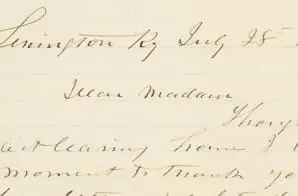 Lexington Ky July 28
Dear Madam
Thoug
leaving home I
moment to thank yo